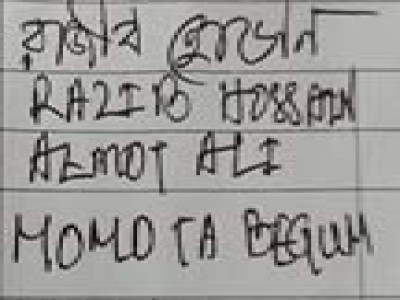 রাজীব হোসেন
RAZIB HOSSAIN
AZMOT ALI
MOMOTA BEGUM